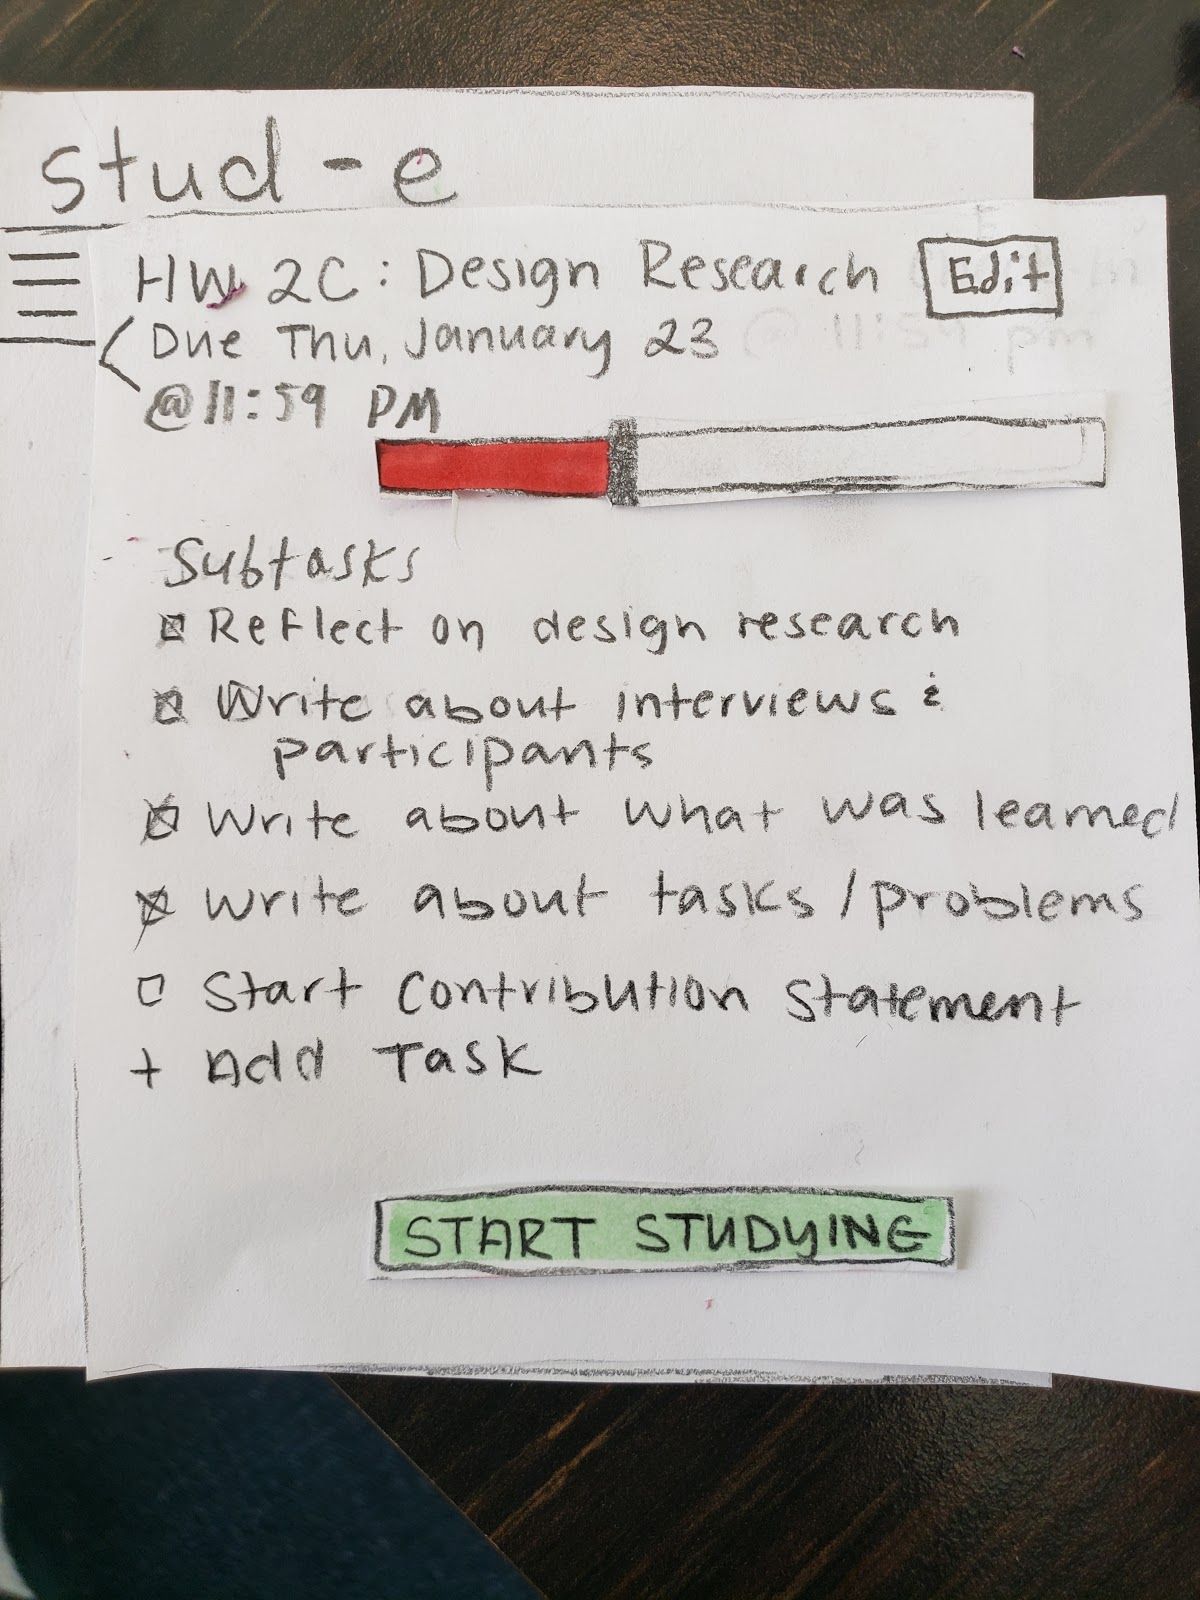 stud-e
HW 2C: Design Research
Edit
Due Thu, January 23
@11:59 PM
Subtasks
Reflect on design research
Write about interviews &
participants
Write about what was learned
Write about tasks/problems
Start contribution statement
+ Add Task
START STUDYING